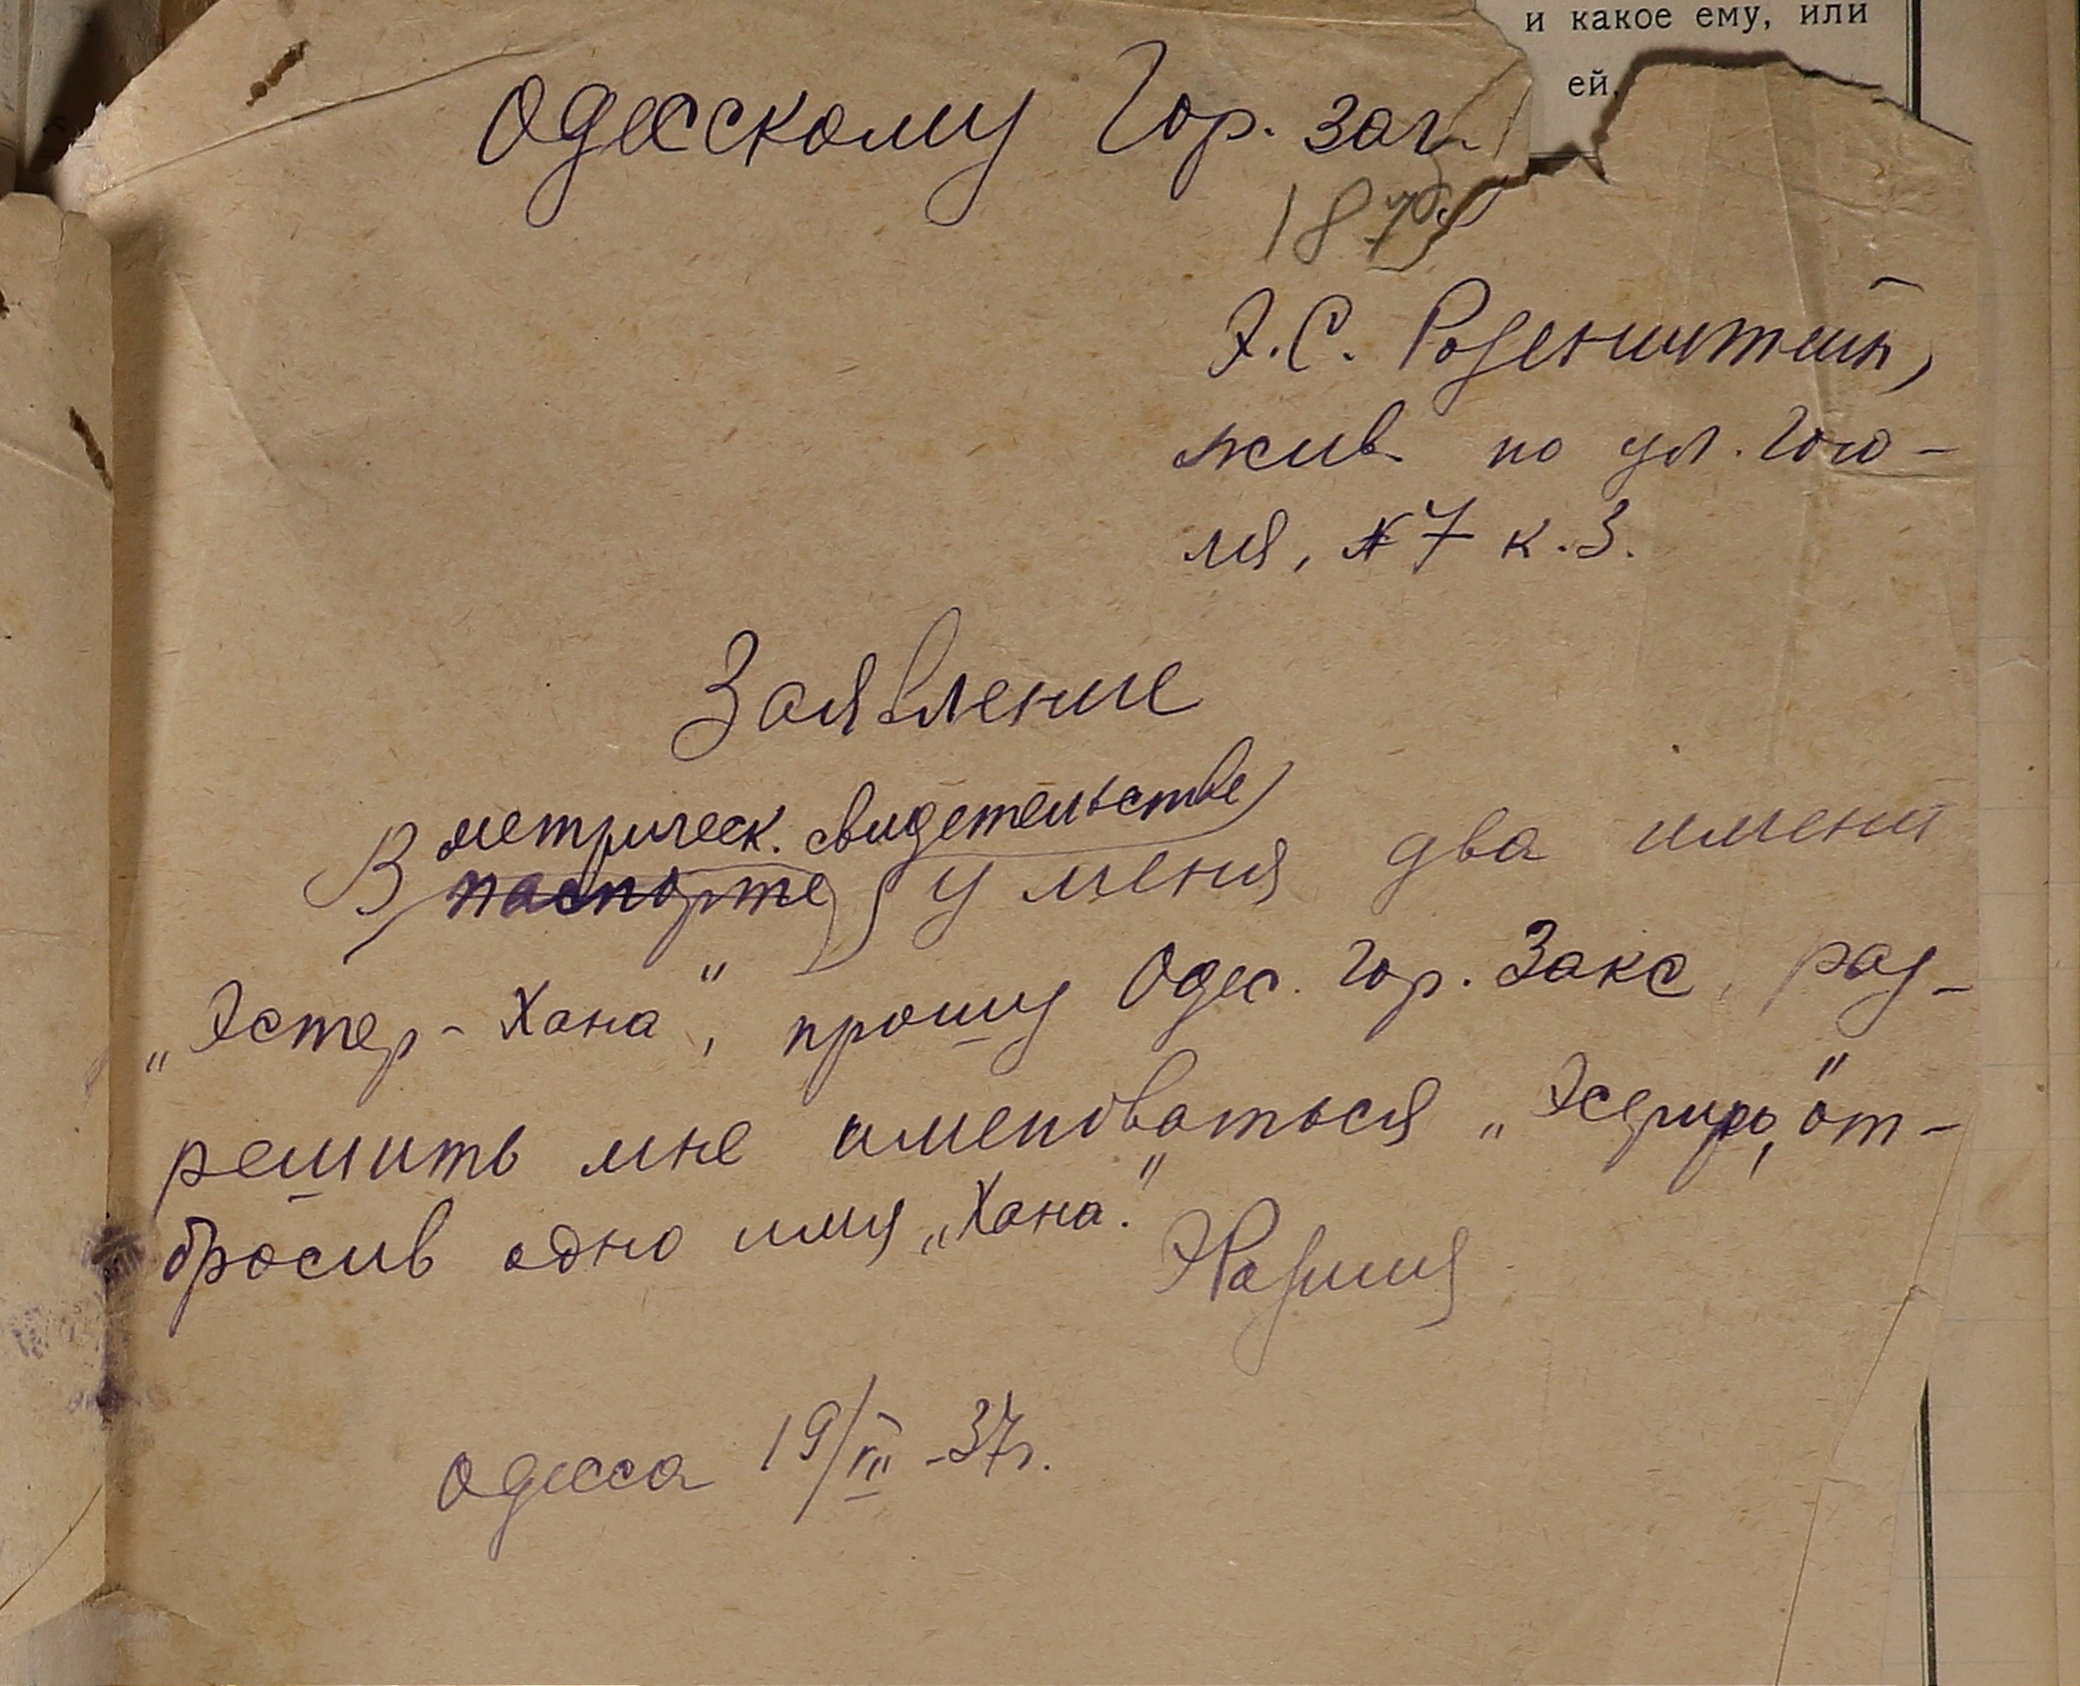 и какое ему, или
ей,
Одесскому Гор. заг
187
Э. С. Розенштейн,
жив. по ул. Гого-
ля, № 7 к. 3.
Заявление
метрическ. свидетельстве
В паспорте у меня два имени
„Эстер-Хана", прошу Одес. Гор. Закс, раз-
решить мне именоваться „Эсфирь," от-
бросив одно имя „Хана".
Одесса 19/III -37г.